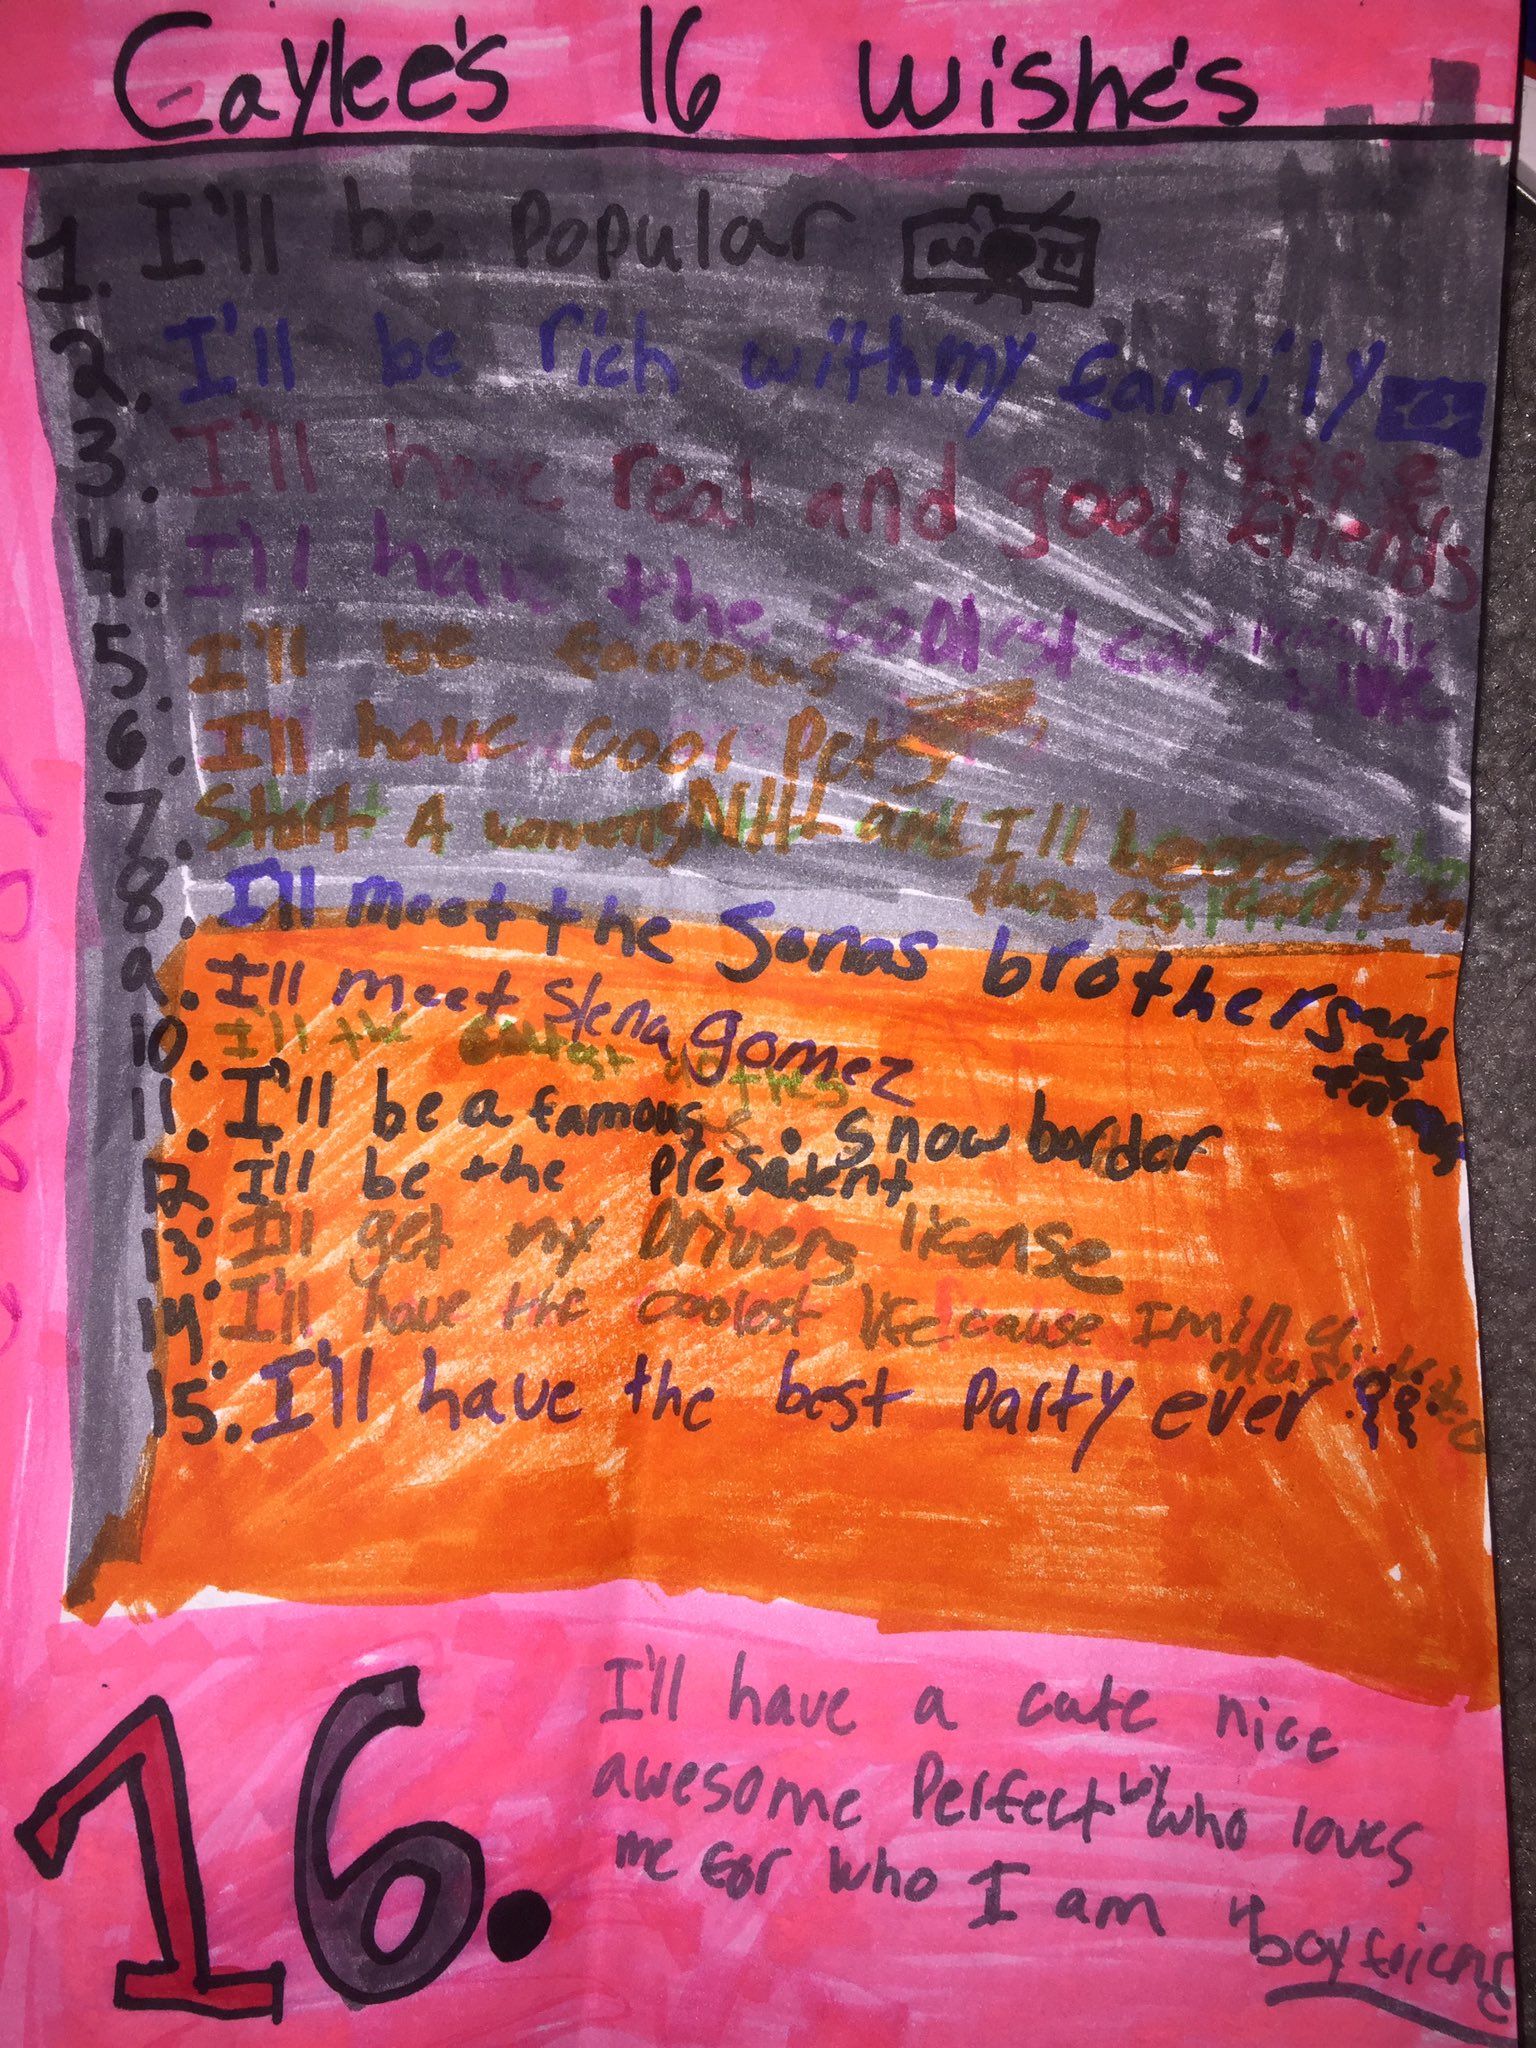 Caylee's 16 Wishe's
1. I'll be popular
2. I'll be rich with my family
3. I'll have real and good friends
4. I'll have the coolest car
5. I'll be famous
6. I'll have cool Pets
7. Start A womens NHL and I'll
8. I'll meet the Jonas brothers
9. I'll meet Slena gomez
10. I'll the clothes
11. I'll be a famous snow border
12. I'll be the president
13. I'll get my Drivers license
14. I'll have the coolest life cause I'm in a
15. I'll have the best party ever
16.
I'll have a cute nice
awesome Perfect boy who loves
me for who I am
"boyfriend